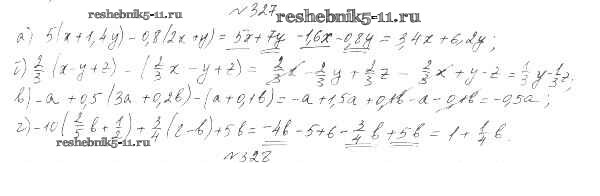 reshebnik5-11.ru
№327
reshebnik5-11.ru
а) 5(x+1,4y)-0,8(2x+y)=5x+7y-1,6x-0,8y=3,4x+6,2y;
б) 2/3(x-y+z)-(2/3x-y+z)=2/3x-2/3y+2/3z-2/3x+y-z=1/3y-1/3z;
в) -a+0,5(3a+0,2b)-(a+0,1b)=-a+1,5a+0,1b-a-0,1b=-0,5a;
г) -10(2/5b+1/2)+3/4(8-b)+5b=-4b-5+6-3/4b+5b=1+1/4b.
reshebnik5-11.ru
№328